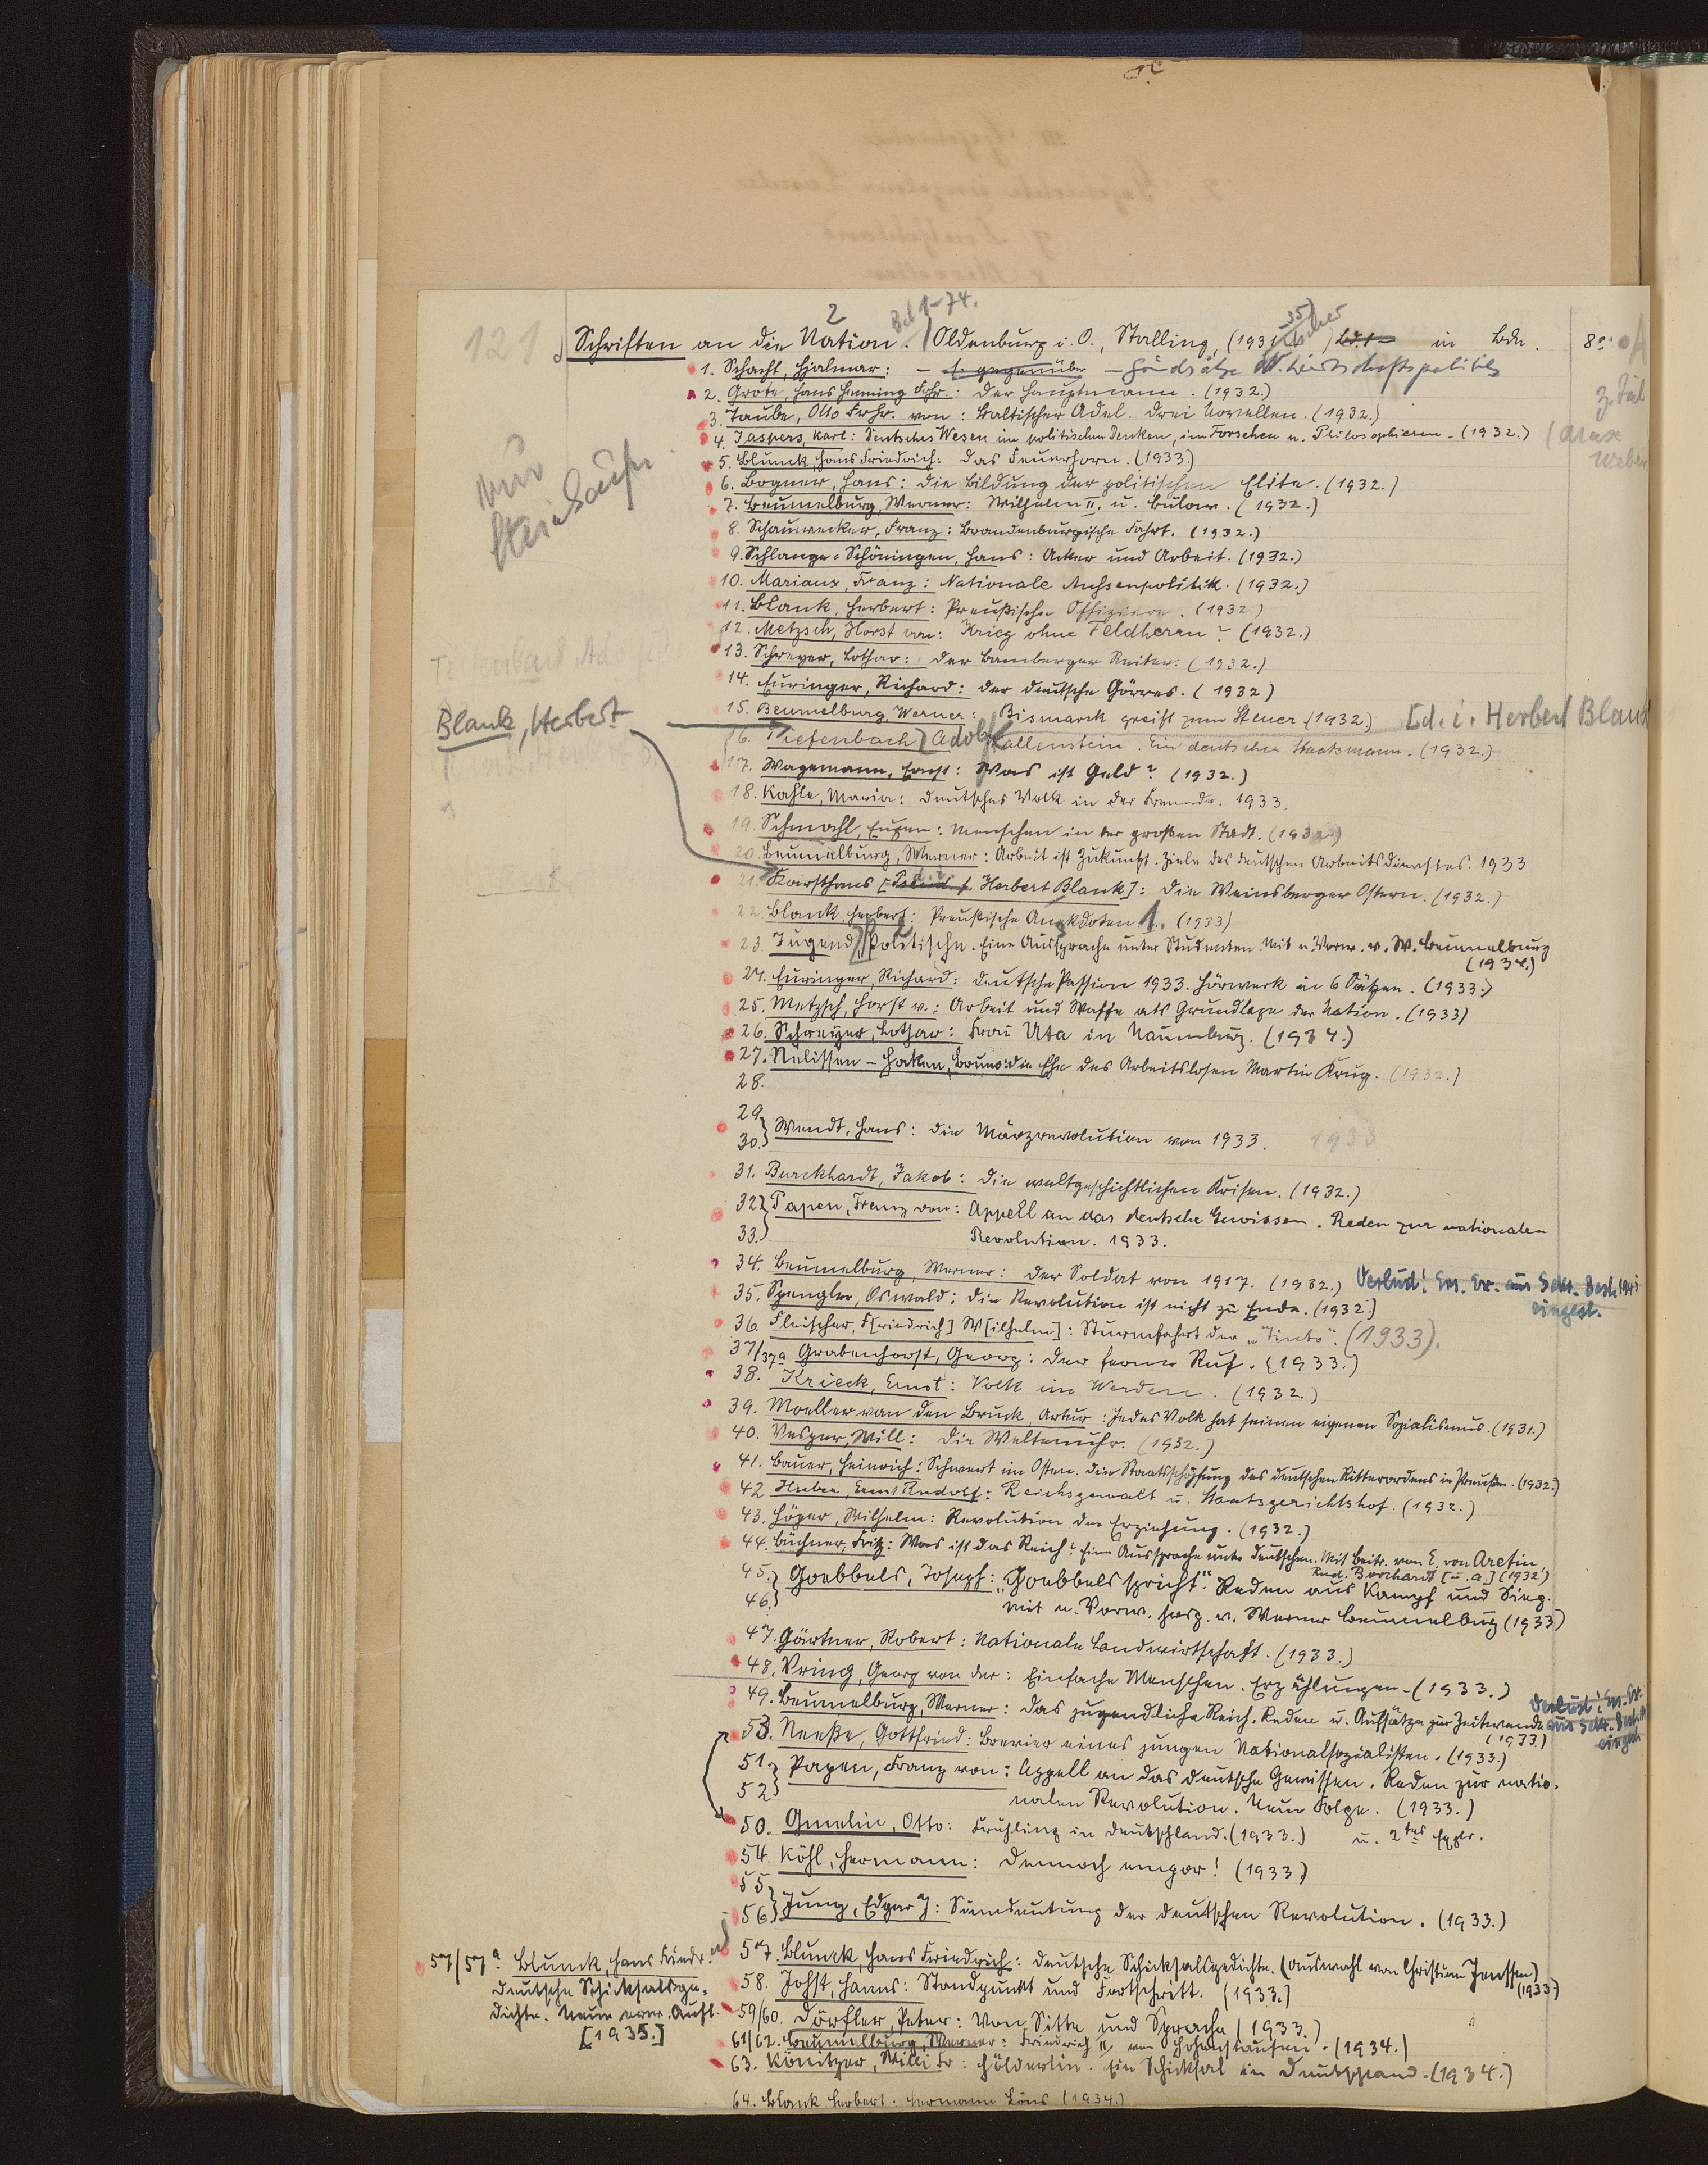 121
2
Bd 1-74.
35
Schriften an die Nation. Oldenburg i. O., Stalling, (1931 in Bdn. 8°
1. Schacht, Hjalmar: – s. gegenüber – Grundsätze d. Wirtschaftspolitik
2. Grote, Hans Henning Frhr.: Der Hauptmann. (1932.)
3. Taube, Otto Frhr. von: Baltischer Adel. Drei Novellen. (1932.)
4. Jaspers, Karl: Deutsches Wesen im politischen Denken, im Forschen u. Philosophieren. (1932.) (Max Weber
5. Blunck, Hans Friedrich: Das Feuerhorn. (1933.)
6. Bogner, Hans: Die Bildung der politischen Elite. (1932.)
7. Beumelburg, Werner: Wilhelm II. u. Bülow. (1932.)
8. Schauwecker, Franz: Brandenburgische Fahrt. (1932.)
9. Schlange-Schöningen, Hans: Acker und Arbeit. (1932.)
10. Mariaux, Franz: Nationale Aussenpolitik. (1932.)
11. Blank, Herbert: Preußische Offiziere. (1932.)
12. Metzsch, Horst von: Krieg ohne Feldherrn? (1932.)
13. Schreyer, Lothar: Der Bamberger Reiter. (1932.)
14. Euringer, Richard: Der deutsche Görres. (1932)
15. Beumelburg, Werner: Bismarck greift zum Steuer (1932.)
Blank, Herbert
[d. i. Herbert Blank
16. Tiefenbach, Adolf Wallenstein. Ein deutscher Staatsmann. (1932.)
17. Wagemann, Ernst: Was ist Geld? (1932.)
18. Kahle, Maria: Deutsches Volk in der Fremde. 1933.
19. Schmahl, Eugen: Menschen in der großen Stadt. (1932)
20. Beumelburg, Werner: Arbeit ist Zukunft. Ziele des deutschen Arbeitsdienstes. 1933
21. Karsthans [d. i. Herbert Blank]: Die Weinsberger Ostern. (1932.)
22. Blank, Herbert: Preußische Anekdoten 1. (1933)
23. Jugend, Politische. Eine Aussprache unter Studenten. Mit e. Vorw. v. W. Beumelburg
(1932.)
24. Euringer, Richard: Deutsche Passion 1933. Hörwerk in 6 Sätzen. (1933.)
25. Metzsch, Horst v.: Arbeit und Waffe als Grundlage der Nation. (1933)
26. Schreyer, Lothar: Frau Uta in Naumburg. (1934.)
27. Nelissen-Haken, Bruno: Die Ehe des Arbeitslosen Martin Krug. (1932.)
28.
29.
30. Wendt, Hans: Die Märzrevolution von 1933. 1933
31. Burckhardt, Jakob: Die weltgeschichtlichen Krisen. (1932.)
32. Papen, Franz von: Appell an das deutsche Gewissen. Reden zur nationalen
33. Revolution. 1933.
34. Beumelburg, Werner: Der Soldat von 1917. (1932.)
Verlust! Ers. Ex. aus Sekr. Best.
eingest.
35. Spengler, Oswald: Die Revolution ist nicht zu Ende. (1932.)
36. Fleischer, F[riedrich] W[ilhelm]: Sturmfahrt der "Tinto". (1933).
37/37a Grabenhorst, Georg: Der ferne Ruf. (1933.)
38. Krieck, Ernst: Volk im Werden. (1932.)
39. Moeller van den Bruck, Artur: Jedes Volk hat seinen eigenen Sozialismus. (1931.)
40. Vesper, Will: Die Weltenuhr. (1932.)
41. Bauer, Heinrich: Schwert im Osten. Die Staatsschöpfung des deutschen Ritterordens in Preußen. (1932.)
42 Huber, Ernst Rudolf: Reichsgewalt u. Staatsgerichtshof. (1932.)
43. Höper, Wilhelm: Revolution der Erziehung. (1932.)
44. Büchner, Fritz: Was ist das Reich? Eine Aussprache unter Deutschen. Mit Beitr. von E. von Aretin,
Rud. Borchardt [u. a.] (1932)
45. Goebbels, Joseph: "Goebbels spricht". Reden aus Kampf und Sieg.
46. Mit e. Vorw. hrsg. v. Werner Beumelburg (1933)
47. Gärtner, Robert: Nationale Landwirtschaft. (1933.)
48. Vring, Georg von der: Einfache Menschen. Erzählungen. (1933.)
49. Beumelburg, Werner: Das jugendliche Reich. Reden u. Aufsätze zur Zeitwende
(1933.)
Verlust! Ers. Ex.
aus Sekr. Best.
eingest.
53. Neeße, Gottfried: Brevier eines jungen Nationalsozialisten. (1933.)
51. Papen, Franz von: Appell an das deutsche Gewissen. Reden zur natio-
52 nalen Revolution. Neue Folge. (1933.)
50. Gmelin, Otto: Frühling in Deutschland. (1933.) u. 2tes Expl.
54. Köhl, Hermann: Dennoch empor! (1933)
55
56 Jung, Edgar J: Sinndeutung der deutschen Revolution. (1933.)
57 Blunck, Hans Friedrich: Deutsche Schicksalsgedichte. (Auswahl von Christian Jenssen)
(1933)
57/57a Blunck, Hans Friedr.
Deutsche Schicksalsge-
dichte. Neue verm. Aufl.
[1935.]
58. Johst, Hanns: Standpunkt und Fortschritt. (1933.)
59/60. Dörfler, Peter: Von Sitte und Sprache (1933.)
61/62. Beumelburg, Werner: Friedrich II. von Hohenstaufen. (1934.)
63. Könitzer, Willi Fr: Hölderlin. Ein Schicksal in Deutschland. (1934.)
64. Blank Herbert. Hermann Löns (1934.)